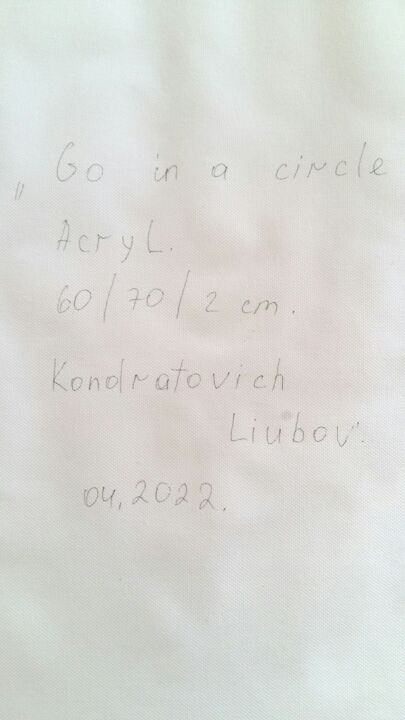 „Go in a circle
Acryl.
60/70/2 cm.
Kondratovich
Liubov.
04,2022.